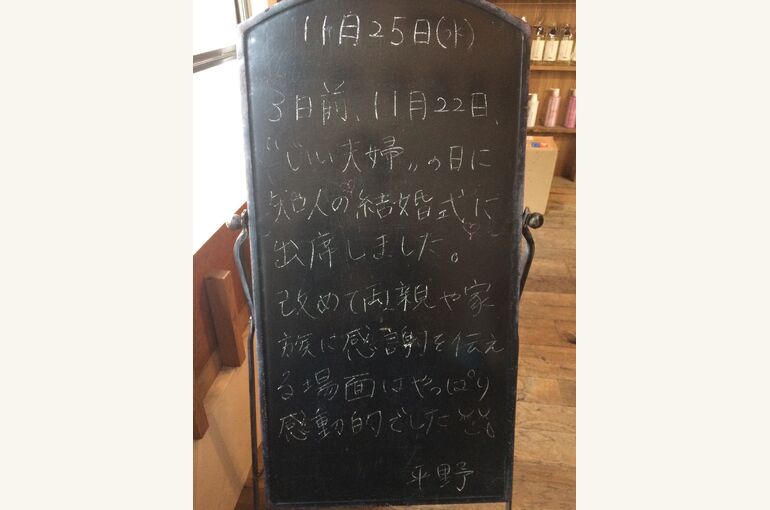 11月25日(水)
3日前、11月22日、
"いい夫婦"の日に
知人の結婚式に
出席しました。
改めて両親や家
族に感謝を伝え
る場面はやっぱり
感動的でした
平野